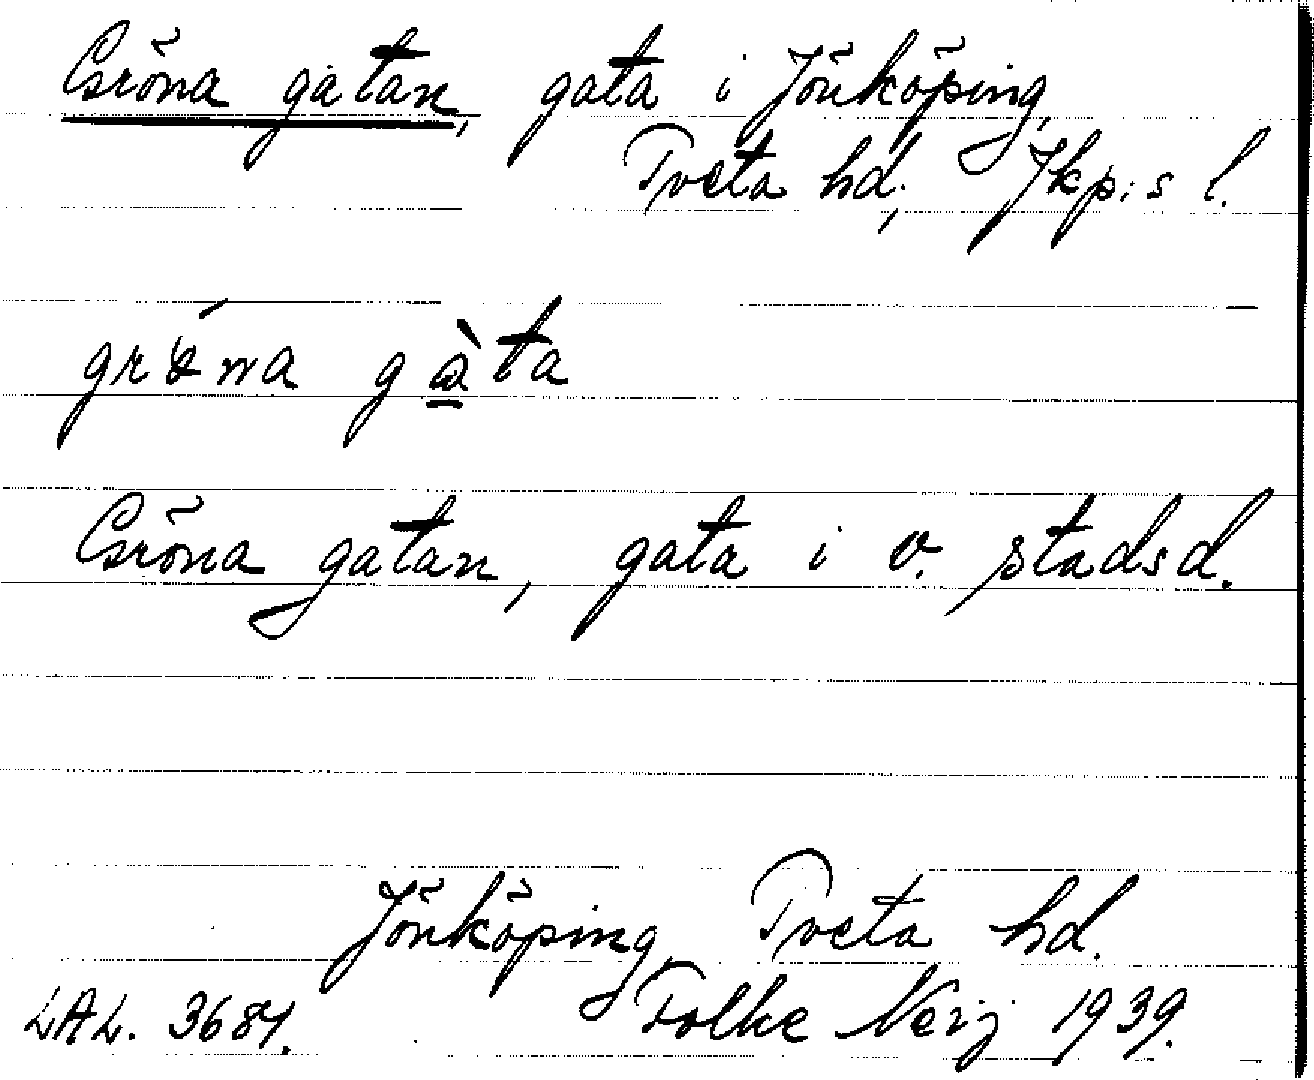 Gröna gatan, gata i Jönköping,
Tveta hd, Jkp:s l.
grǿna gàta
Gröna gatan, gata i v. stadsd.
Jönköping, Tveta hd.
LAL. 3684. Folke Nerj 1939.